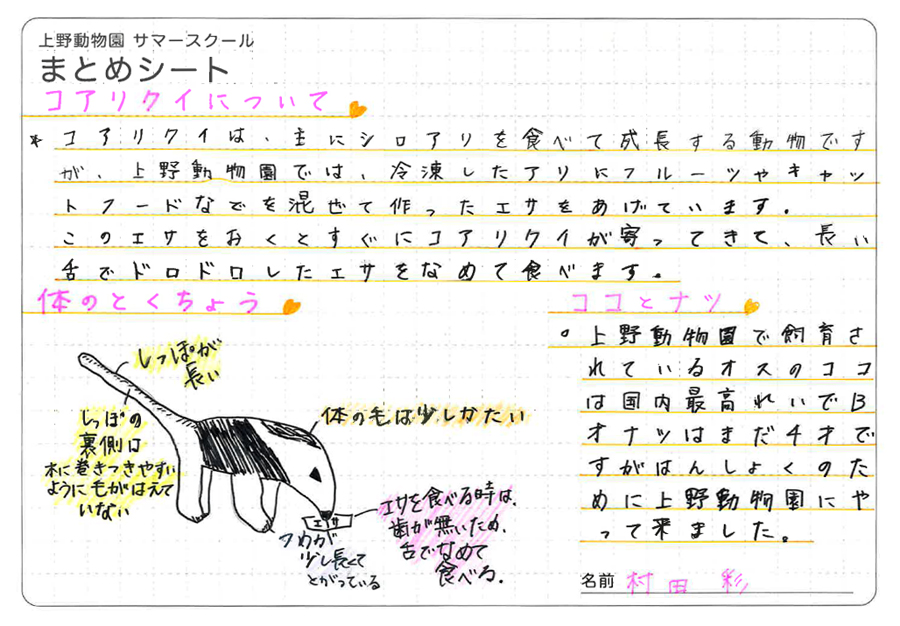 上野動物園 サマースクール
まとめシート
コアリクイについて
* コアリクイは、主にシロアリを食べて成長する動物です
が、上野動物園では、冷凍したアリにフルーツやキャッ
トフードなどを混ぜて作ったエサをあげています。
このエサをおくとすぐにコアリクイが寄ってきて、長い
舌でドロドロしたエサをなめて食べます。
体のとくちょう
しっぽが
長い
しっぽの
裏側は
木に巻きつきやすい
ように毛がはえて
いない
体の毛は少しかたい
エサ
エサを食べる時は、
歯が無いため、
舌でなめて
食べる。
つめが
少し長くて
とがっている
ココとナツ
○上野動物園で飼育さ
れているオスのココ
は国内最高れいで13
オナツはまだ4才で
すがはんしょくのた
めに上野動物園にや
って来ました。
名前 村田 彩